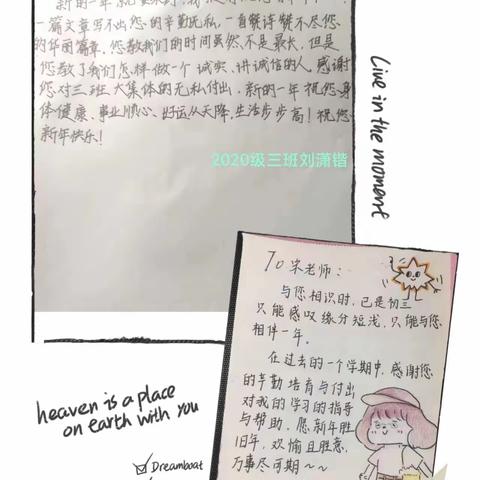 一篇文章写不出您的辛勤无私,一首赞诗赞不尽您
的年图篇章。您教我们的时间虽然不是最长,但是
您教了我们怎样做一个诚实、讲诚信的人,感谢
您对三班大集体的无私付出,新的一年祝您身
体健康、事业顺心、好运从天降,生活步步高!祝您
新年快乐!
2020级三班刘潇锴
Live in the moment
To宋老师:
与您相识时,已是初三
只能感叹缘分短浅,只能与您
相伴一年。
在过去的一个学期中,感谢您
的辛勤培育与付出
对我的学习的指导
与帮助,愿新年胜
旧年,欢愉且胜意,
万事尽可期~~
heaven is a place
on earth with you
Dreamboat